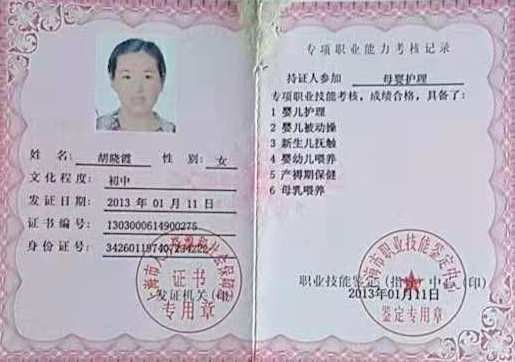 姓 名: 胡晓霞 性 别: 女
文化程度: 初中
发证日期: 2013 年 01 月 11 日
证书编号: 1303000614900275
身份证号:
发证机关(印)
证书
专用章
专项职业能力考核记录
持证人参加 母婴护理
专项职业技能考核,成绩合格,具备了:
1 婴儿护理
2 婴儿被动操
3 新生儿抚触
4 婴幼儿喂养
5 产褥期保健
6 母乳喂养
职业技能鉴定(指导)中心(印)
2013年01月11日
上海市职业技能鉴定中心
鉴定专用章